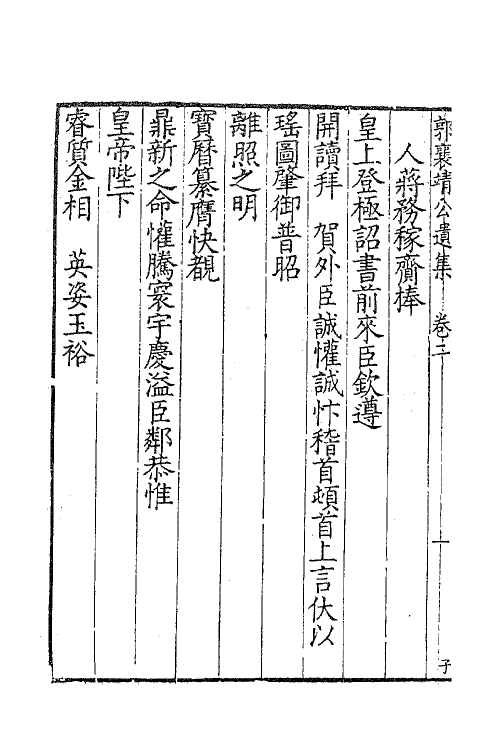 郭襄靖公遺集 卷二 一 子
人蔣務稼齎捧
皇上登極詔書前來臣欽遵
開讀拜 賀外臣誠懽誠忭稽首頓首上言伏以
瑤圖肇御普昭
離照之明
寶曆纂膺快覩
鼎新之命懽騰寰宇慶溢臣鄰恭惟
皇帝陛下
睿質金相 英姿玉裕